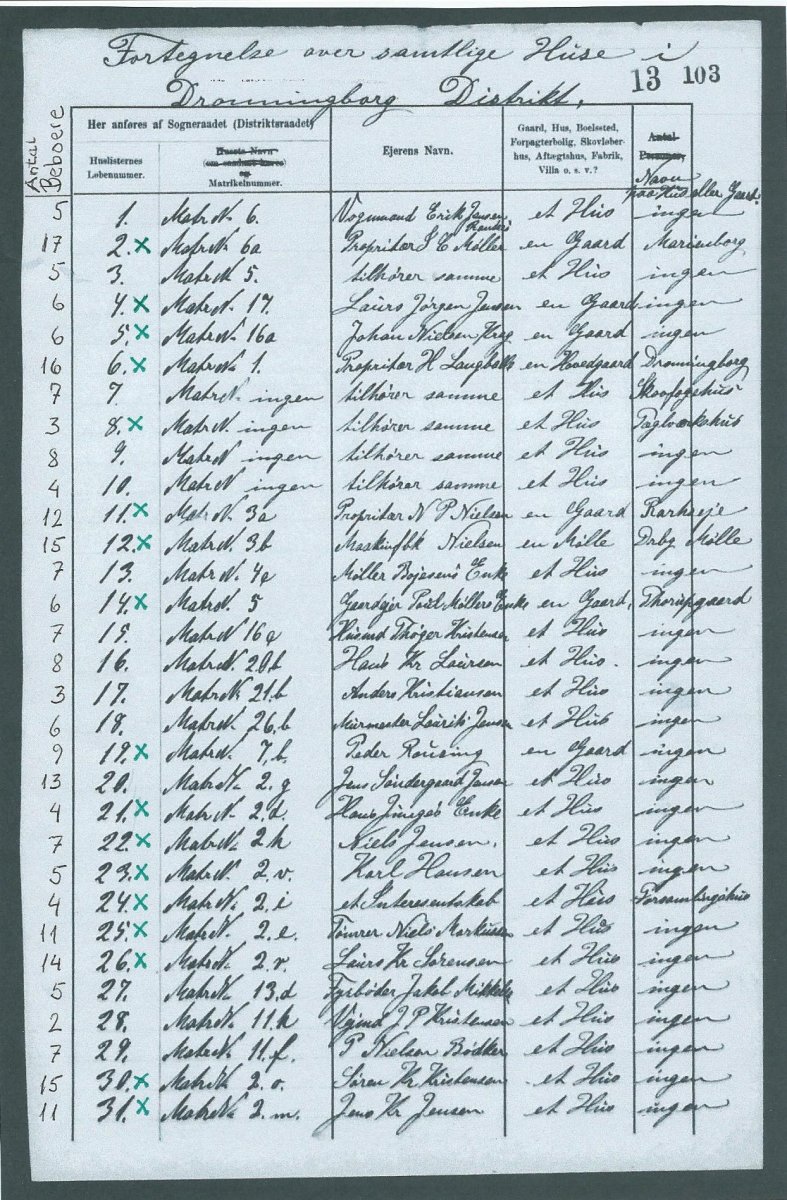 Fortegnelse over samtlige Huse i
Dronningborg Distrikt.
13 103
Antal Beboere
Her anføres af Sogneraadet (Distriktsraadet)
Huslisternes Løbenummer.
Husets Navn (om saadant haves) og Matrikelnummer.
Ejerens Navn.
Gaard, Hus, Boelssted, Forpagterbolig, Skovløberhus, Aftægtshus, Fabrik, Villa o. s. v.?
Antal Personer.
Navn paa Hus eller Gaard.
5 1. Matr N. 6. Vognmand Erik Jensen, Randers et Hus ingen
17 2. x Matr N. 6a Propritær S E Møller en Gaard Marienborg
5 3. Matr N 5. tilhører samme et Hus ingen
6 4. x Matr N. 17. Laurs Jørgen Jensen en Gaard ingen
6 5. x Matr N. 16a Johan Nielsen Krag en Gaard ingen
16 6. x Matr N. 1. Propritær H Langballe en Hovedgaard Dronningborg
7 7. Matr N ingen tilhører samme et Hus Skovfogehus
3 8. x Matr N. ingen tilhører samme et Hus Taglværkshus
8 9. Matr N ingen tilhører samme et Hus ingen
4 10. Matr N ingen tilhører samme et Hus ingen
12 11. x Matr N. 3a Propritær N P Nielsen en Gaard
15 12. x Matr N. 3b Maskinfbk Nielsen en Mølle Drbg Mølle
7 13. Matr N. 4a Møller Bojesens Enke et Hus ingen
6 14. x Matr N. 5 Gaardejer Poul Møllers Enke en Gaard, Thorupgaard
7 15. Matr N 16a Husmd Thøger Kristensen et Hus ingen
8 16. Matr N. 20.b Hans Kr Laursen et Hus. ingen
3 17. Matr N. 21.b Anders Kristiansen et Hus ingen
6 18. Matr N. 26.b Murmester Laurits Jensen et Hus ingen
9 19. x Matr N. 7.b. Peder Rousing en Gaard ingen
13 20. Matr N. 2.g Jens Søndergaard Jensen et Hus ingen
4 21. x Matr N. 2.d. Hans Enke et Hus ingen
7 22. x Matr N. 2.k Niels Jensen. et Hus ingen
5 23. x Matr N. 2.v. Karl Hansen et Hus ingen
4 24. x Matr N. 2.i et Interesentskab et Hus Forsamlingshus
11 25. x Matr N. 2.e. Tømrer Niels Markussen et Hus ingen
14 26. x Matr N. 2.r. Laurs Kr Sørensen et Hus ingen
5 27. Matr N. 13.d Fyrbøder Jakob Mikkels et Hus ingen
2 28. Matr N. 11.k Vejmd J P Kristensen et Hus ingen
7 29. Matr N. 11.f. P Nielsen Bødker et Hus ingen
15 30. x Matr N 2.o. Søren Kr Kristensen et Hus ingen
11 31. x Matr N 2.m. Jens Kr Jensen et Hus ingen